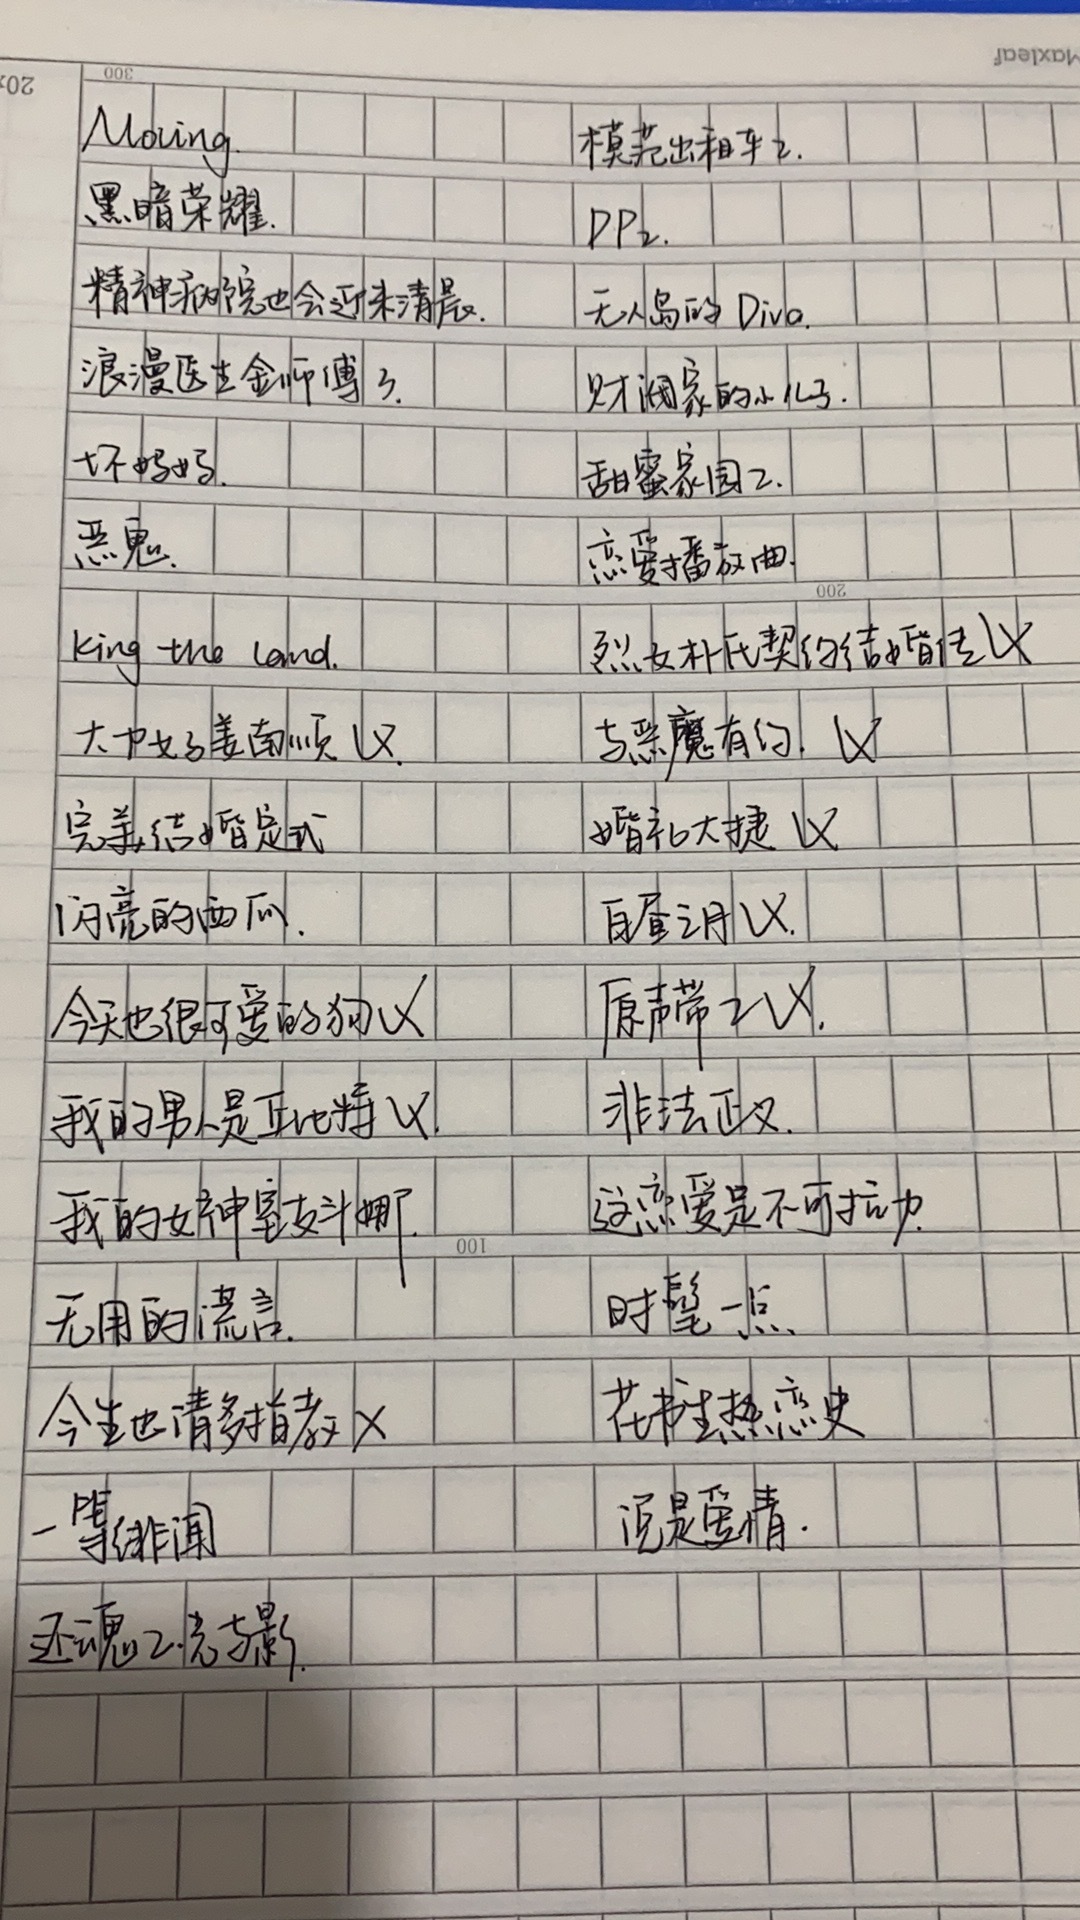 Maxleaf
300
20×
Moving.
模范出租车2.
黑暗荣耀.
DP2.
精神病院也会迎来清晨.
无人岛的 Diva.
浪漫医生金师傅3.
财阀家的小儿子.
坏妈妈.
甜蜜家园2.
恶鬼.
恋爱播放曲.
200
King the Land.
烈女朴氏契约结婚传 \X
大力女子姜南顺 \X.
与恶魔有约. \X
完美结婚定式
婚礼大捷 \X
闪亮的西瓜.
白昼之月 \X.
今天也很可爱的狗 \X
原声带2 \X.
我的男人是丘比特 \X.
非法正义.
我的女神室友斗娜.
这恋爱是不可抗力.
100
无用的谎言.
时髦一点.
今生也请多指教 X
花书生热恋史
一等绯闻
说是爱情.
还魂2.光与影.